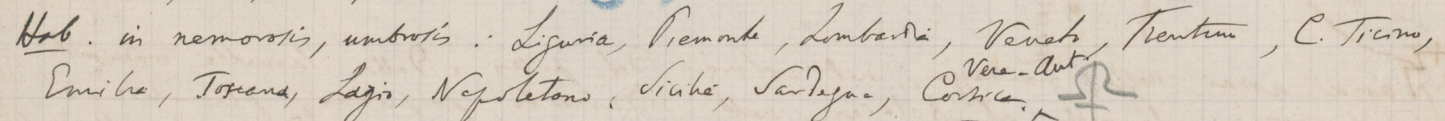 Hab. in nemorosis, umbrosis : Liguria, Piemonte, Lombardia, Veneto, Trentino, C. Ticino,
Vere-Aut.
Emilia, Toscana, Lazio, Napoletano, Sicilia, Sardegna, Corsica.